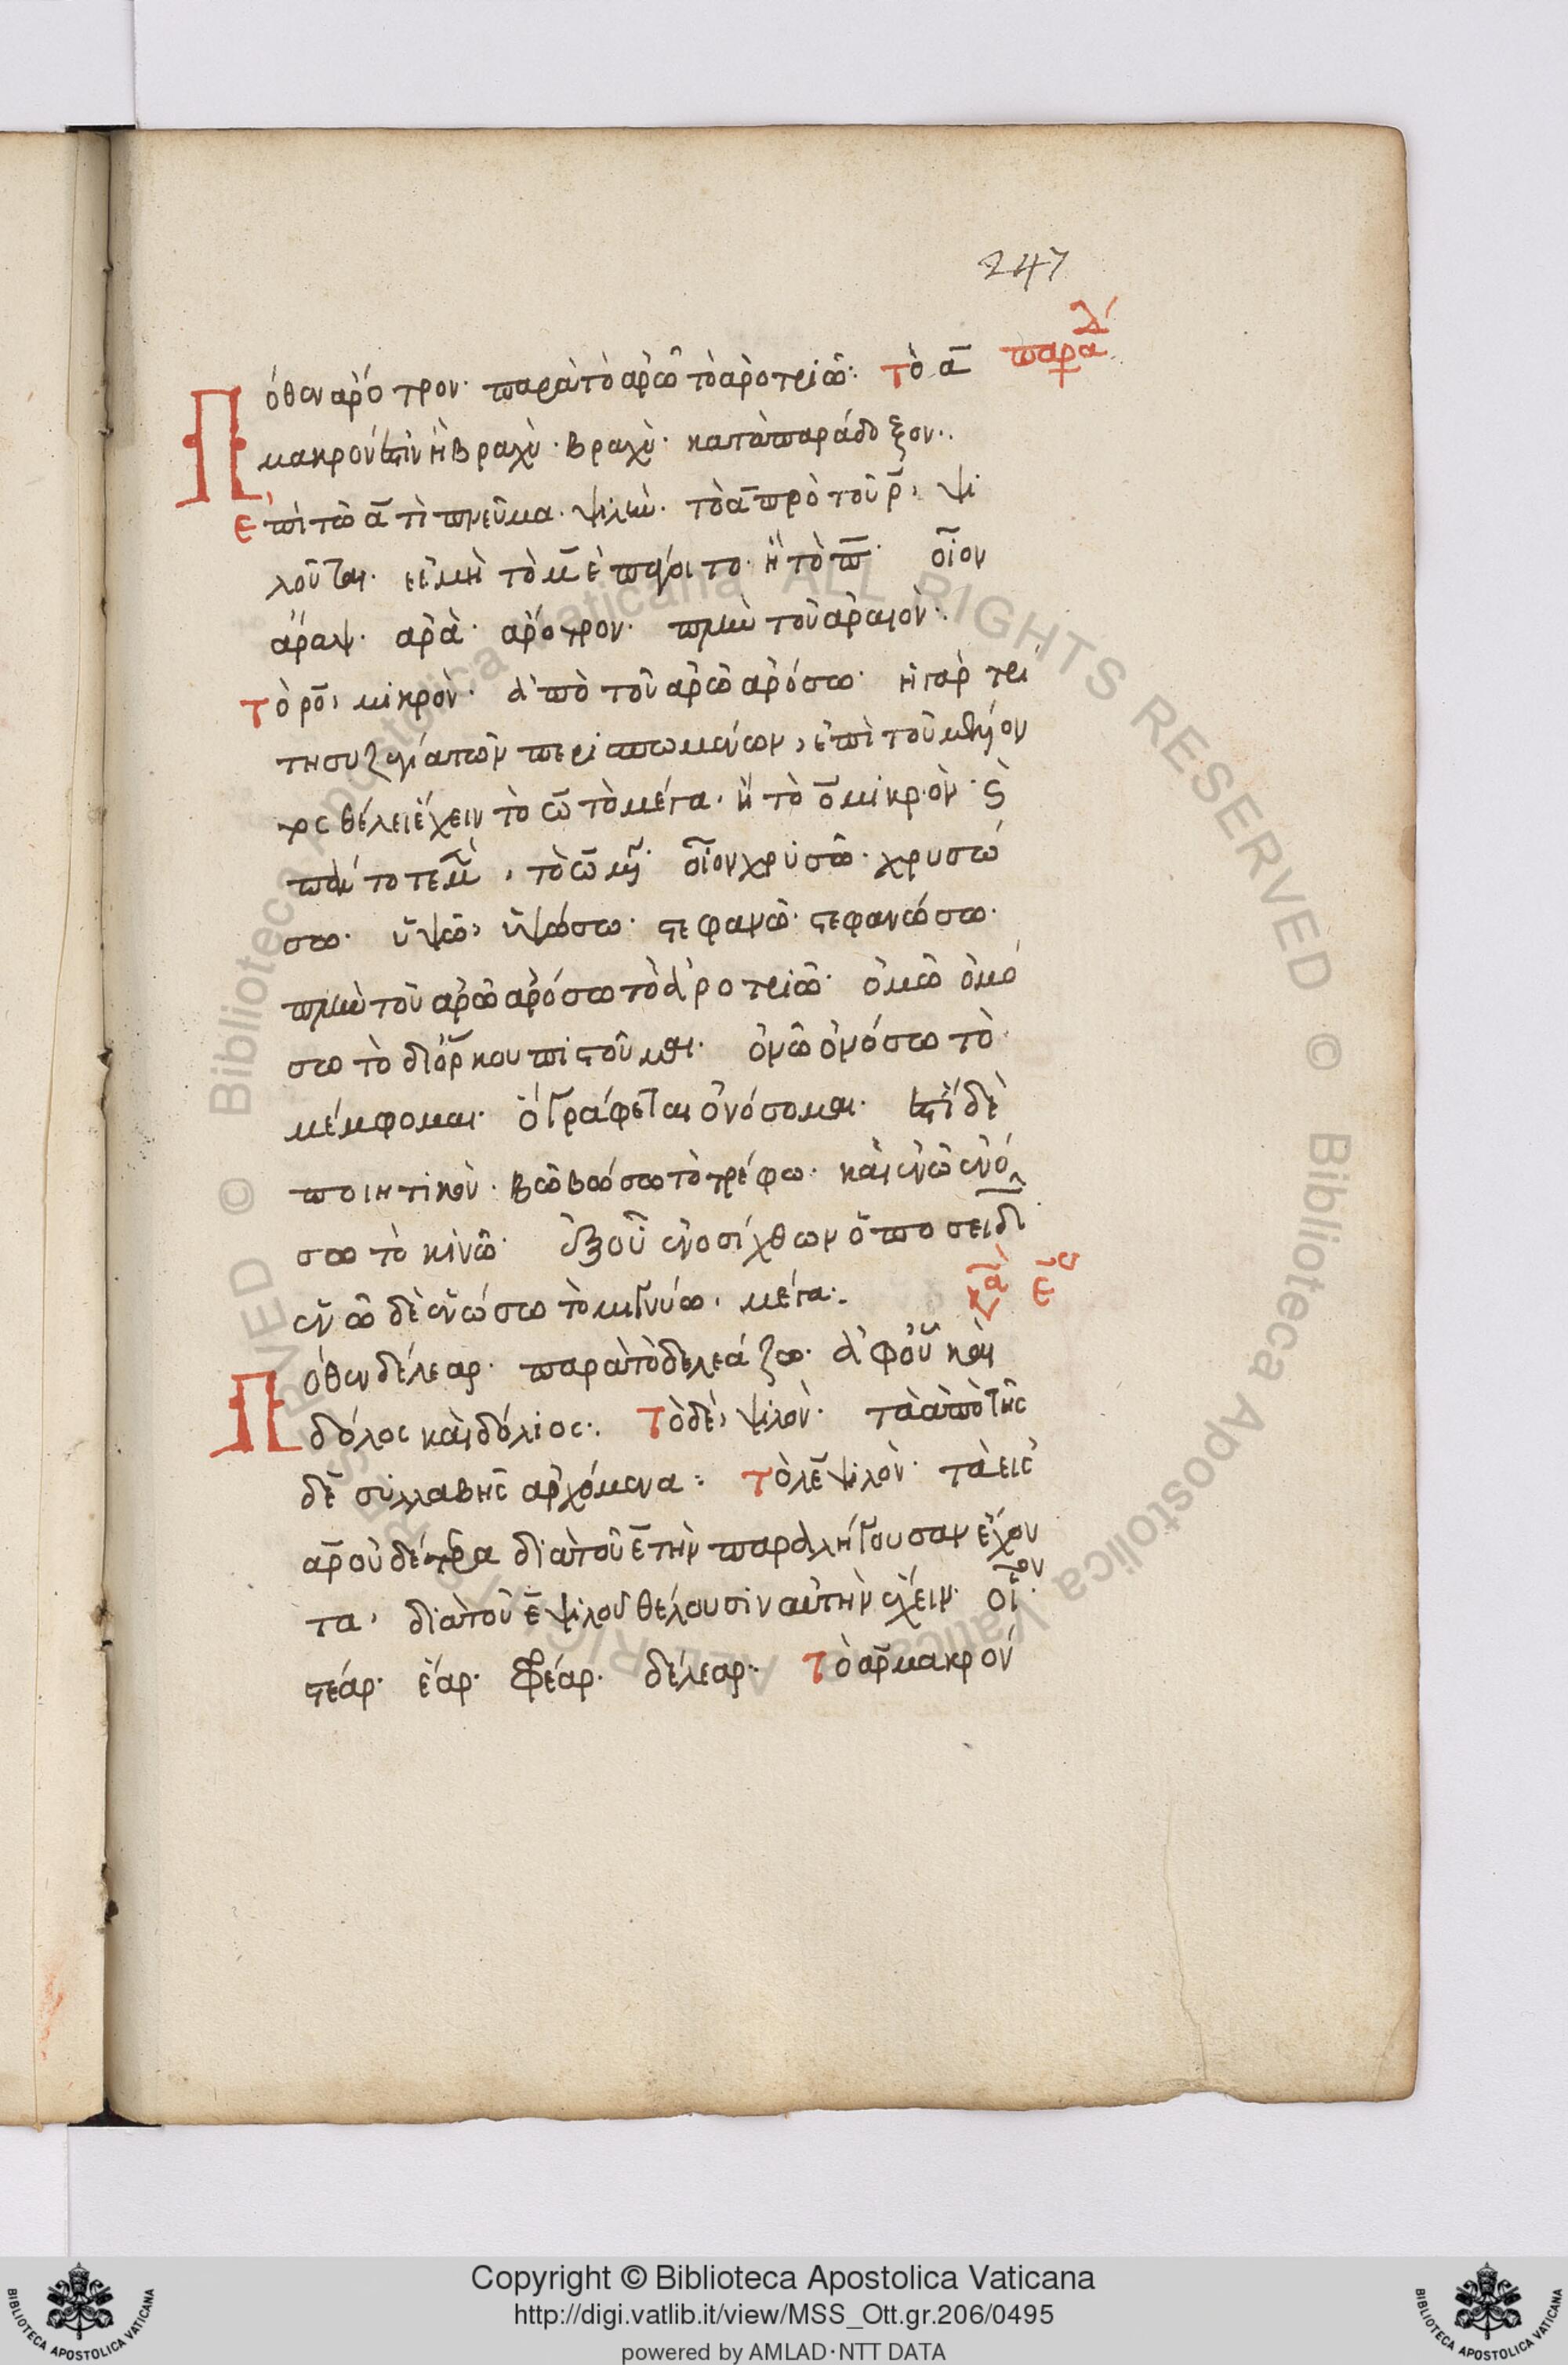 247
παρα λ´
Πόθεν ἀρότρον· παρὰ τὸ ἀρῶ τὸ ἀροτριῶ: τὸ α
μακρόν ἐστιν ἢ βραχύ· βραχύ· κατὰ παράδοξον:
ἐπὶ τῶ α τί πνεῦμα· ψιλήν· τὸ α πρὸ τοῦ ρ, ψι
λοῦται· εἰ μὴ τὸ μ ἐπιφέροιτο· ἢ τὸ π· οἷον
ἄραψ· ἀρὰ· ἄροτρον· πλὴν τοῦ ἁραιόν:
τὸ ρο, μικρὸν· ἀπὸ τοῦ ἀρῶ ἀρόσω· ἡ γὰρ τρί
τη συζυγία τῶν περισπωμένων, ἐπὶ τοῦ μέλλον
τος θέλει ἔχειν τὸ ω τὸ μέγα· ἢ τὸ ο μικρὸν·
τὸ ω μέγα· οἷον χρυσῶ· χρυσώ
σω· ὑψῶ, ὑψώσω· στεφανῶ· στεφανώσω·
πλὴν τοῦ ἀρῶ ἀρόσω τὸ ἀροτριῶ· ὀμῶ ὀμό
σω τὸ δι ὅρκου πιστοῦμαι· ὀνῶ ὀνόσω τὸ
μέμφομαι· ὃ γράφεται ὀνόσομαι· ἔστι δὲ
ποιητικὸν· βῶ βόσω τὸ τρέφω· καὶ ἐνῶ ἐνό
σω τὸ κινῶ· ἐξ οὗ ἐνοσίχθων ὁ ποσειδῶν·
ἑνῶ δὲ ἑνώσω τὸ μιγνύω, μέγα:
Πόθεν δέλεαρ· παρὰ τὸ δελεάζω· ἀφ οὗ καὶ
δόλος καὶ δόλιος: τὸ δε, ψιλὸν· τὰ ἀπὸ τῆς
δε συλλαβῆς ἀρχόμενα: τὸ λε ψιλὸν· τὰ εἰς
αρ οὐδέτερα διὰ τοῦ ε τὴν παραλήγουσαν ἔχον
τα, διὰ τοῦ ε ψιλοῦ θέλουσιν αὐτὴν ἔχειν· οἷον·
στέαρ· ἔαρ· φρέαρ· δέλεαρ: τὸ αρ μακρόν
Copyright © Biblioteca Apostolica Vaticana
http://digi.vatlib.it/view/MSS_Ott.gr.206/0495
powered by AMLAD·NTT DATA
© Biblioteca Apostolica Vaticana ALL RIGHTS RESERVED © Biblioteca Apostolica Vaticana ALL RIGHTS RESERVED
BIBLIOTECA APOSTOLICA VATICANA
BIBLIOTECA APOSTOLICA VATICANA